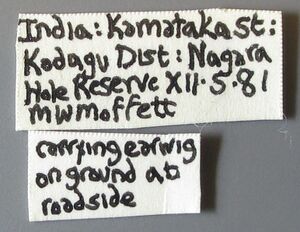 India: Karnataka st:
Kodagu Dist: Nagara
Hole Reserve XII.5.81
MWMoffett
carrying earwig
on ground at
roadside